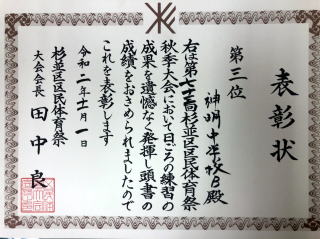 表彰状
第三位
神明中学校B殿
右は第七十三回杉並区区民体育祭
秋季大会において日ごろの練習の
成果を遺憾なく発揮し頭書の
成績をおさめられましたので
これを表彰します
令和二年十一月一日
杉並区区民体育祭
大会会長 田中良